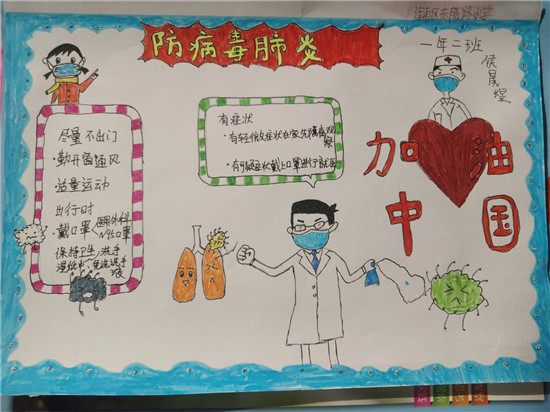 防病毒肺炎
一年二班
侯晟煌
尽量不出门
·勤开窗通风
·适量运动
出行时
·戴口罩 医用外科
N95口罩
保持卫生,洗手
湿纸巾、免洗洗手
液
有症状
·有轻微症状在家先隔离观
察
·有明显症状戴上口罩进行就医
加油
中国